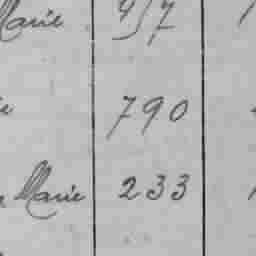 Marie 457
790
Marie 233